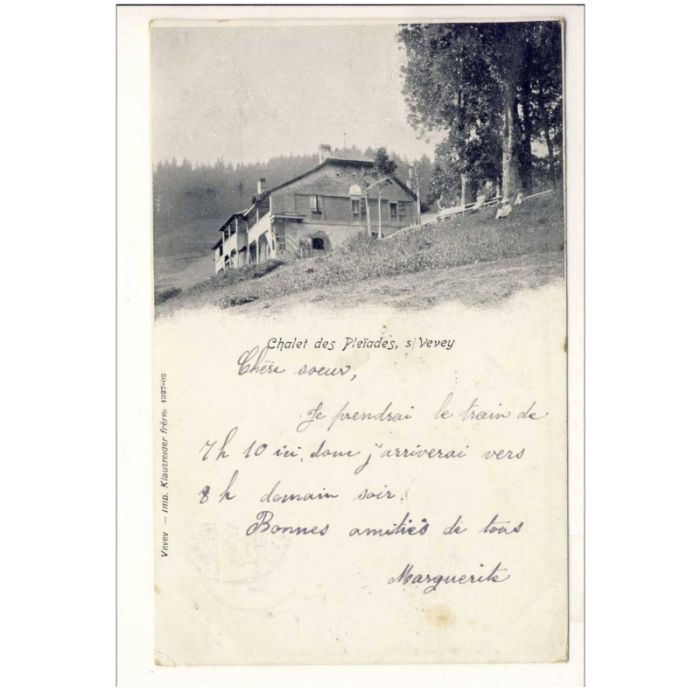 Chalet des Pleïades, s/Vevey
Chère soeur,
Je prendrai le train de
7h 10 ici, donc j'arriverai vers
8 h demain soir.
Bonnes amitiés de tous
Marguerite
Vevey — Imp. Klausfelder frères